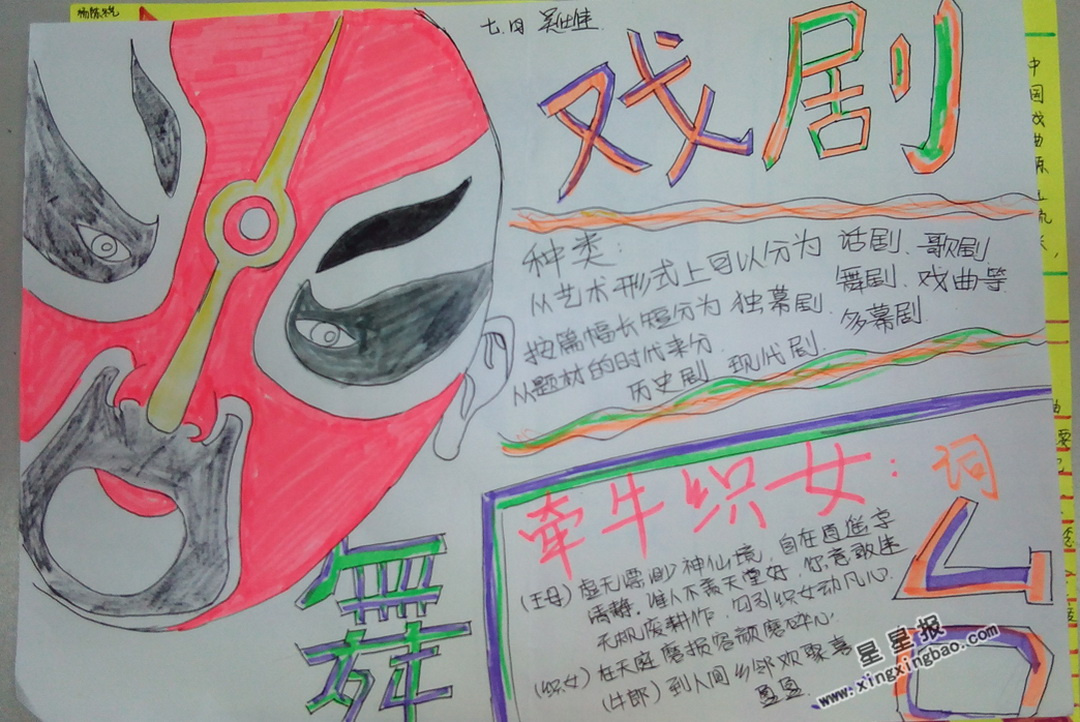 七.四
戏剧
种类:
从艺术形式上可以分为 话剧、歌剧
舞剧、戏曲等
按篇幅长短分为 独幕剧、多幕剧
从题材的时代来分
历史剧、现代剧.
牵牛织女:词
(王母)虚无漂渺神仙境,自在逍遥
清静.谁人不羡天堂好,你意敢迷
无机废耕作,勾引织女动凡心.
(织女)在天庭磨损容颜磨碎心.
(牛郎)到人间乡邻欢聚喜
盈盈.
舞
台
中国戏曲源
星星报
www.xingxingbao.com